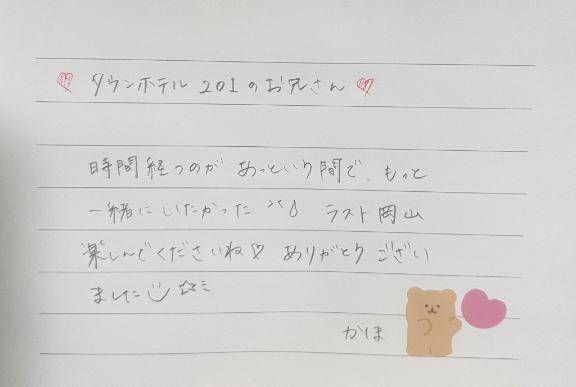 ♡ タウンホテル 201のお兄さん ♡
時間経つのが あっという間で、もっと
一緒にいたかった ラスト岡山
楽しんでくださいね♡ ありがとうござい
ました
かほ